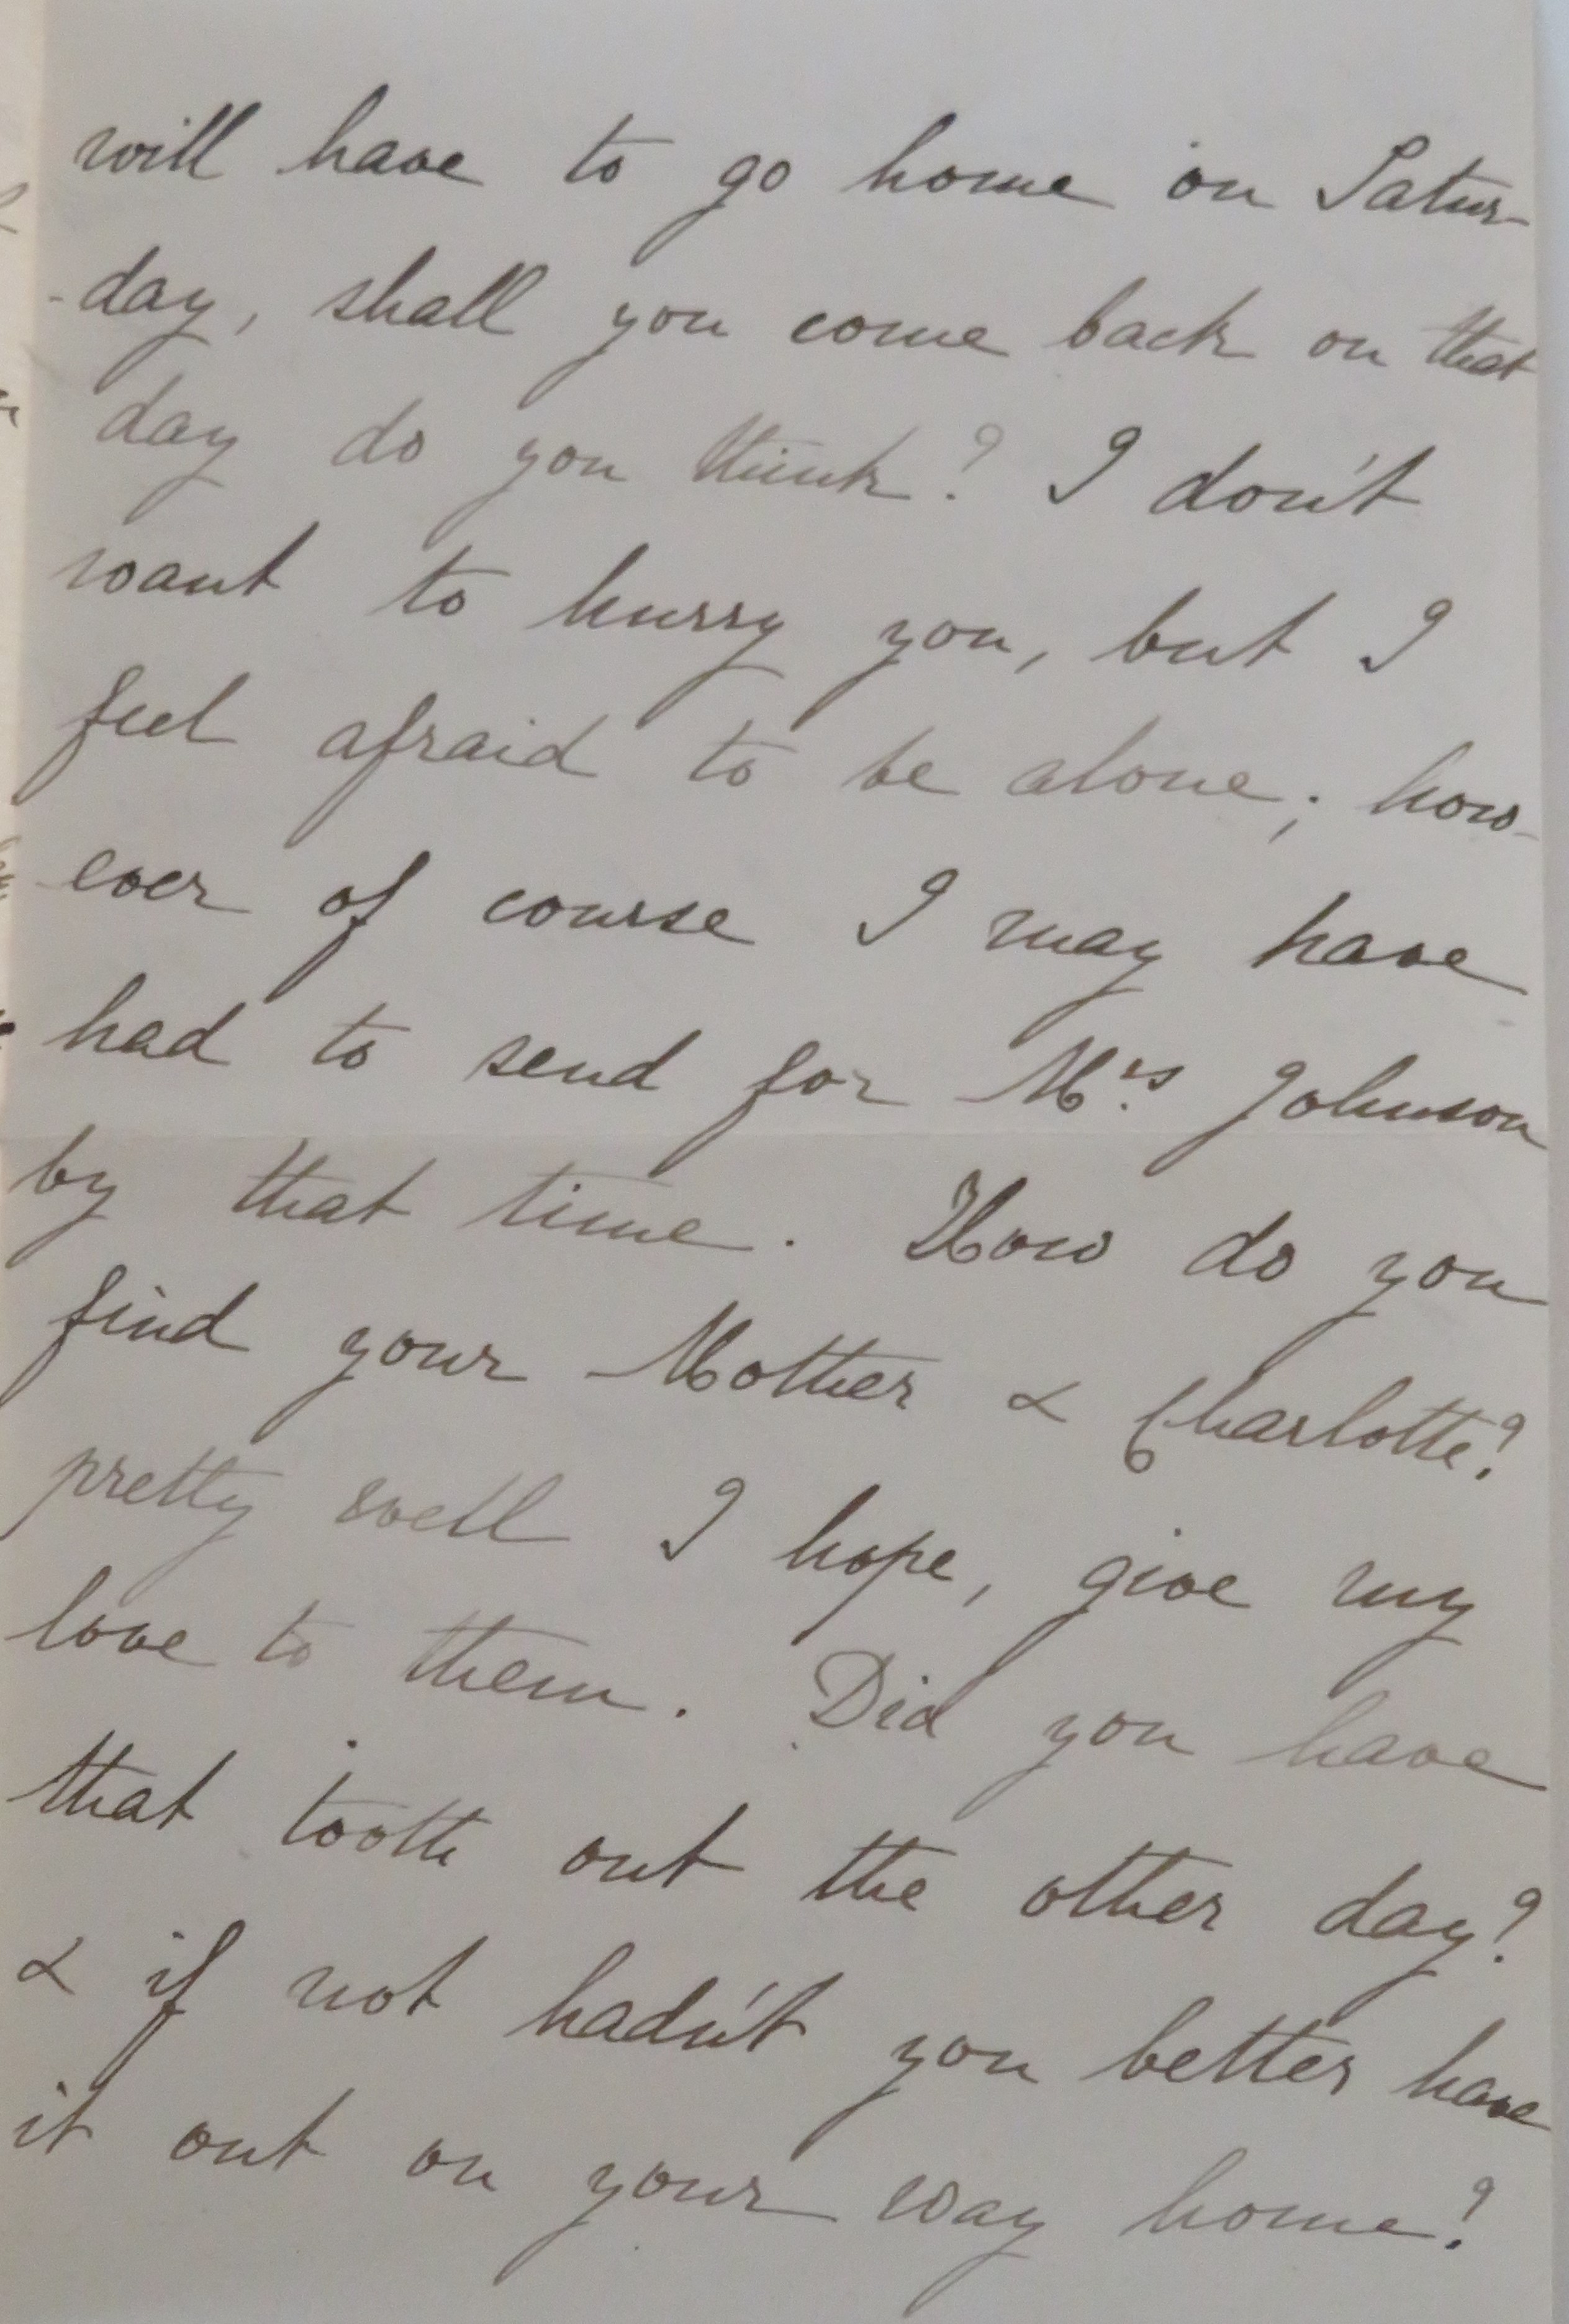 will have to go home on Satur-
-day, shall you come back on that
day do you think? I don't
want to hurry you, but I
feel afraid to be alone; how-
ever of course I may have
had to send for Mrs. Johnson
by that time. How do you
find your Mother & Charlotte?
pretty well I hope, give my
love to them. Did you have
that tooth out the other day?
& if not hadn't you better have
it out on your way home?